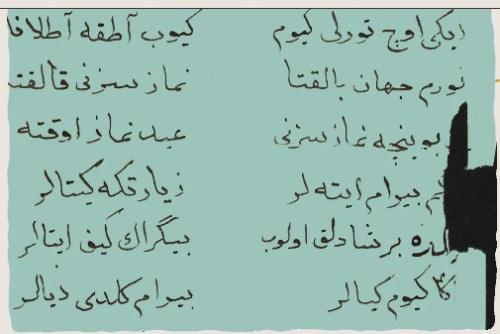 ایكی اوچ تورلی كیوم كیوب آطقه
نورم جهان بالقتا نماز سزنی
بوینچه نماز سزنی عید نماز اوقته
بیرام ایته لر زیارتكه كیتالر
بر شادلق اولوب بیگراك كیف ایتالر
كیوم كیالر بیرام كلدی دیالر